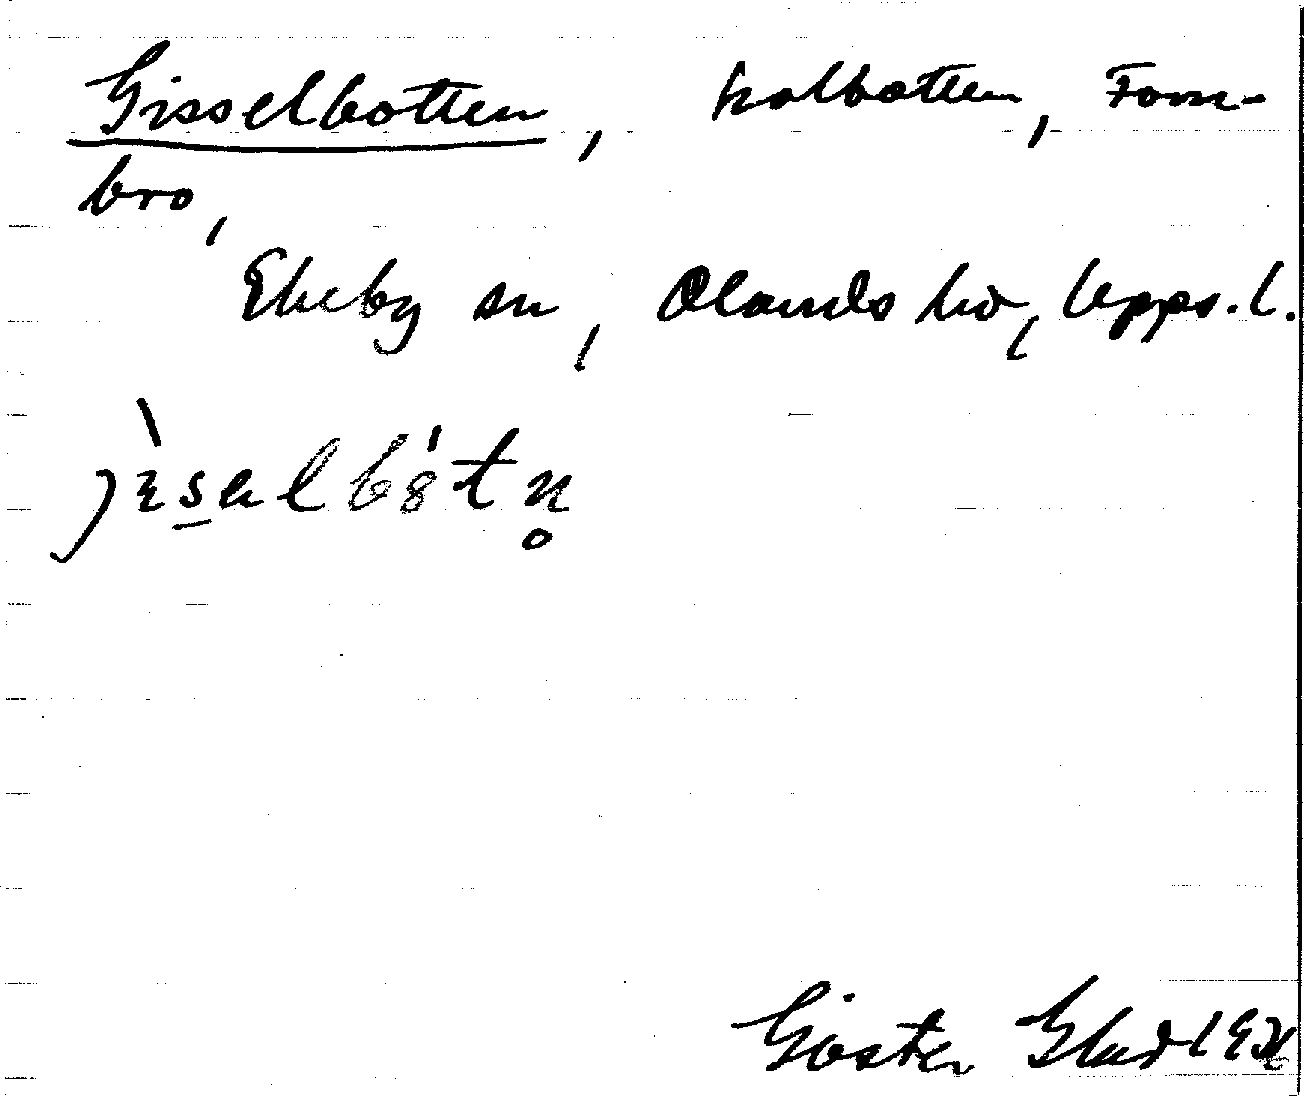 Gisselbotten, kolbotten, Forn-
bro,
Ekeby sn, Olands hd, Upps. l.
jìsəlbót n̥
Gösta Glad